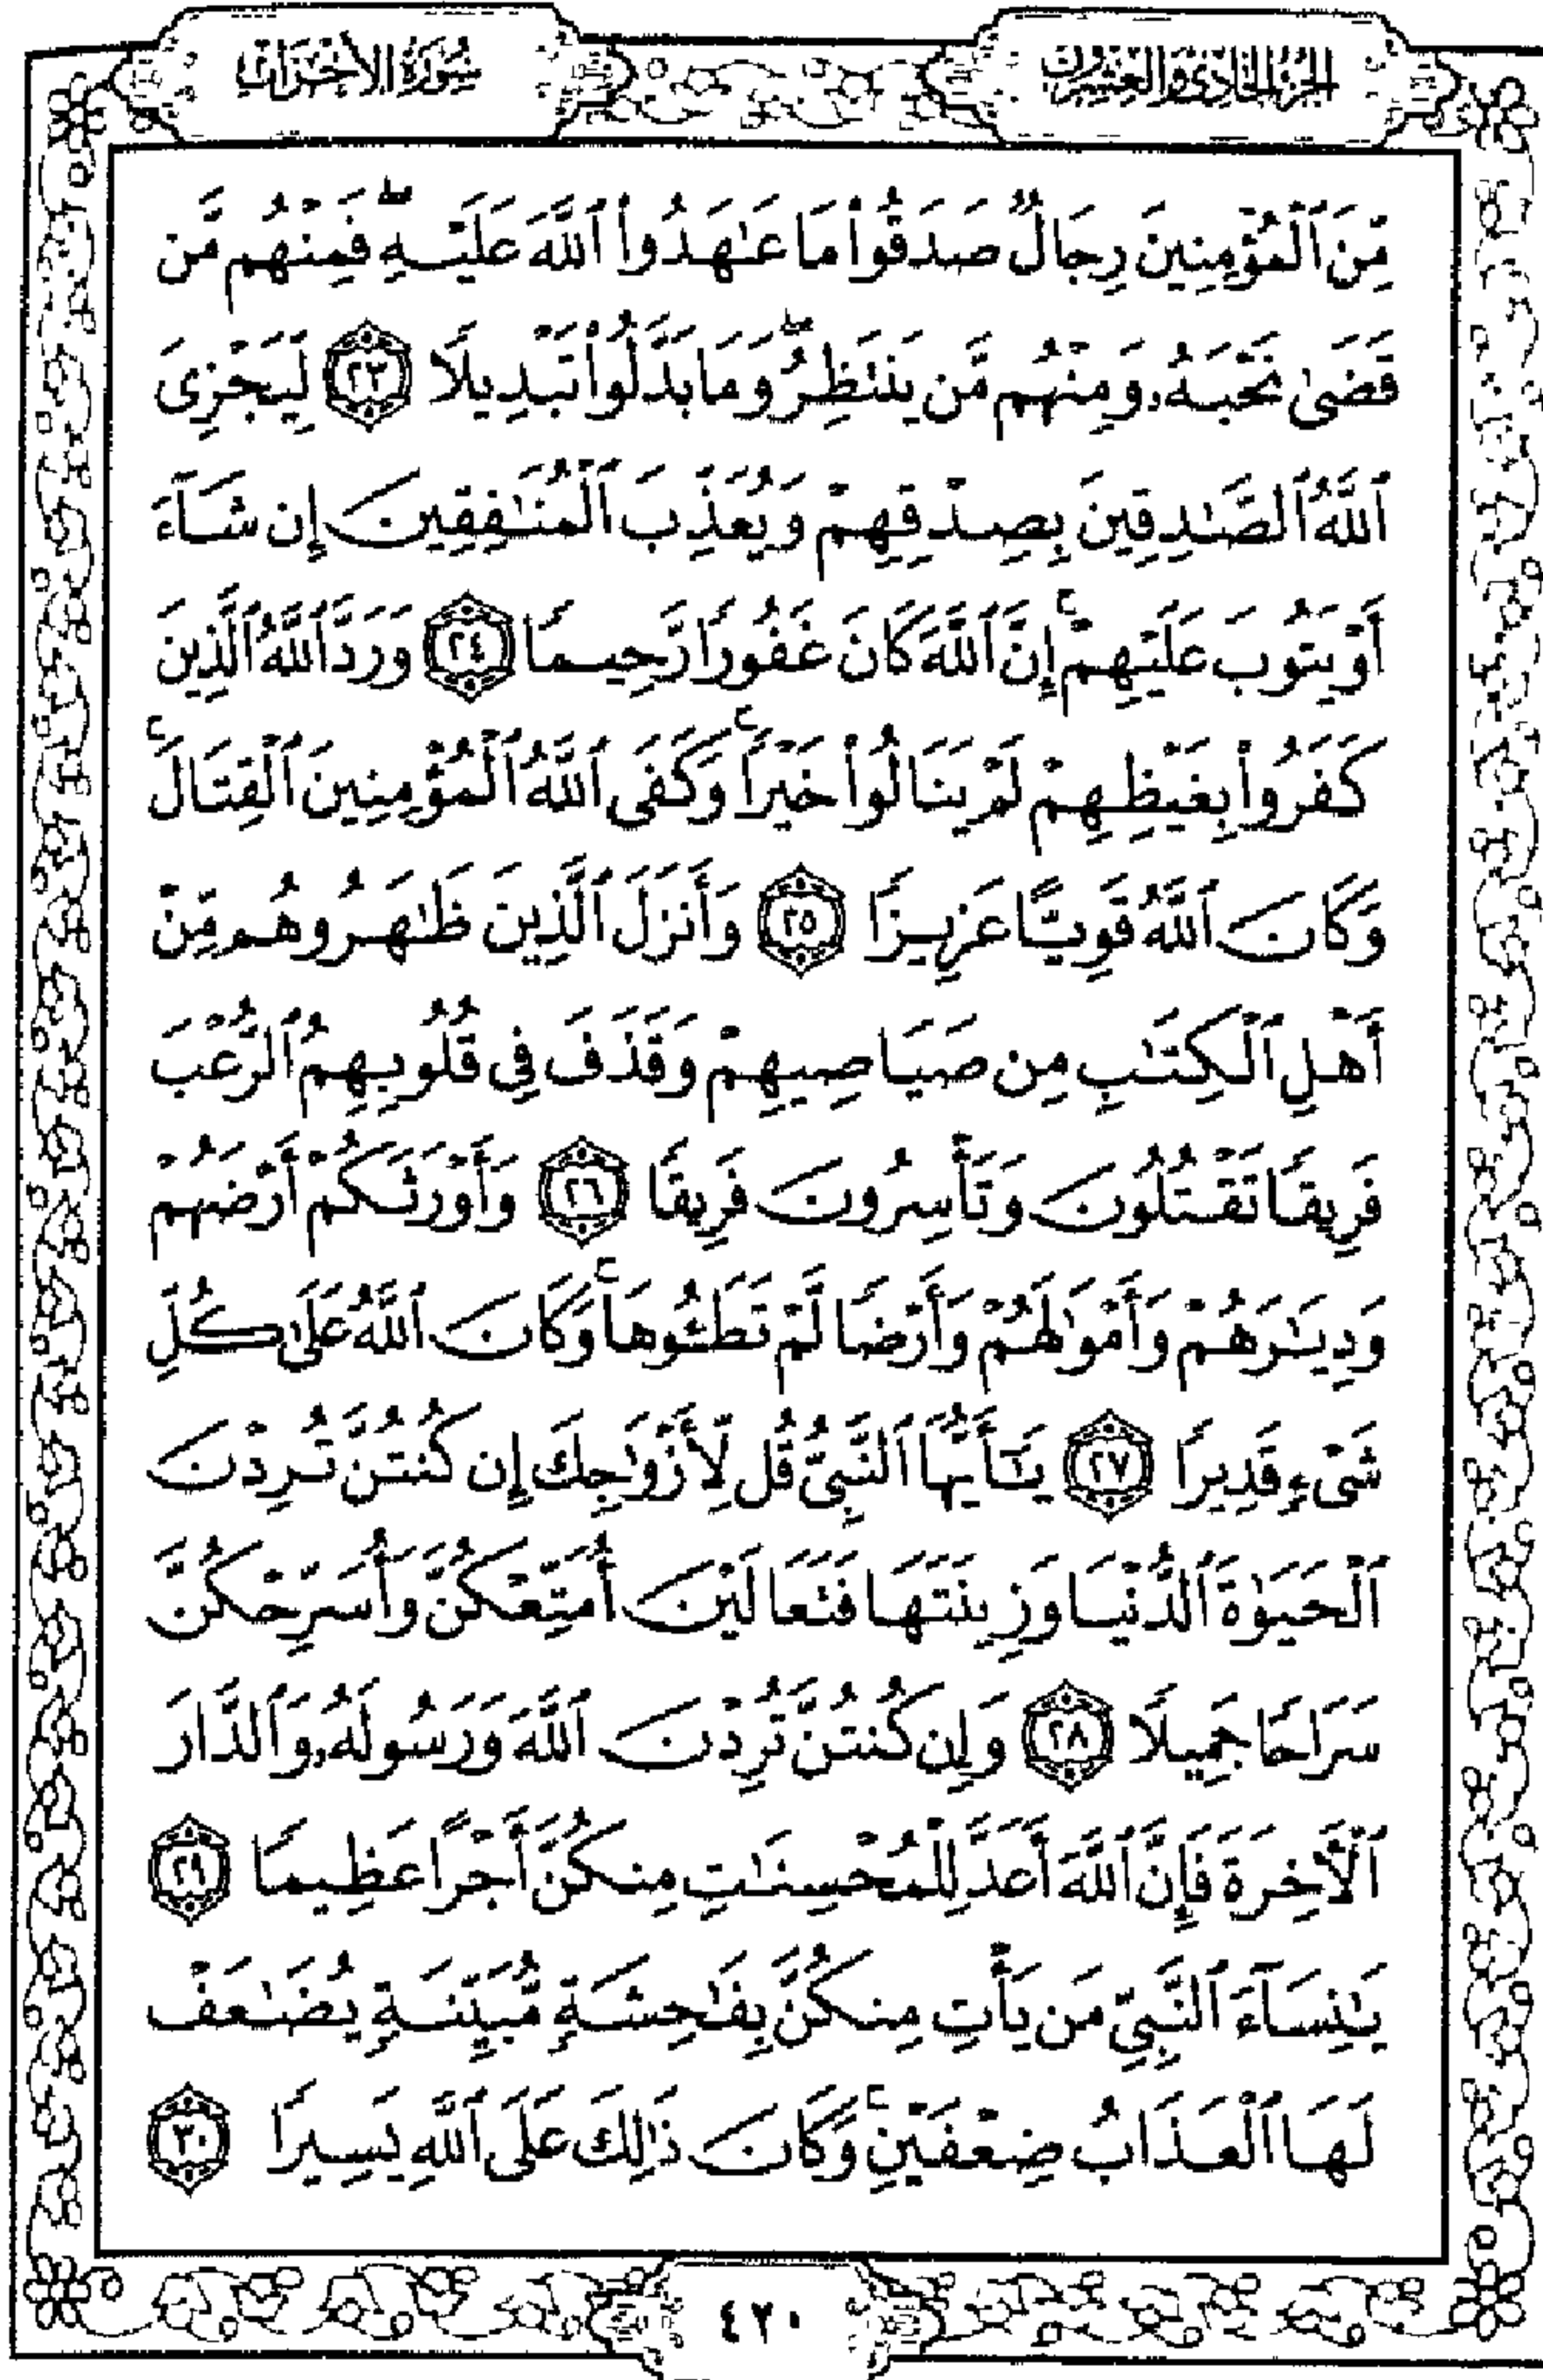 الجزء الحادي والعشرون
سورة الأحزاب
مِّنَ ٱلْمُؤْمِنِينَ رِجَالٌ صَدَقُوا۟ مَا عَٰهَدُوا۟ ٱللَّهَ عَلَيْهِ ۖ فَمِنْهُم مَّن
قَضَىٰ نَحْبَهُۥ وَمِنْهُم مَّن يَنتَظِرُ ۖ وَمَا بَدَّلُوا۟ تَبْدِيلًا ٢٣ لِّيَجْزِىَ
ٱللَّهُ ٱلصَّٰدِقِينَ بِصِدْقِهِمْ وَيُعَذِّبَ ٱلْمُنَٰفِقِينَ إِن شَآءَ
أَوْ يَتُوبَ عَلَيْهِمْ ۚ إِنَّ ٱللَّهَ كَانَ غَفُورًا رَّحِيمًا ٢٤ وَرَدَّ ٱللَّهُ ٱلَّذِينَ
كَفَرُوا۟ بِغَيْظِهِمْ لَمْ يَنَالُوا۟ خَيْرًا ۚ وَكَفَى ٱللَّهُ ٱلْمُؤْمِنِينَ ٱلْقِتَالَ ۚ
وَكَانَ ٱللَّهُ قَوِيًّا عَزِيزًا ٢٥ وَأَنزَلَ ٱلَّذِينَ ظَٰهَرُوهُم مِّنْ
أَهْلِ ٱلْكِتَٰبِ مِن صَيَاصِيهِمْ وَقَذَفَ فِى قُلُوبِهِمُ ٱلرُّعْبَ
فَرِيقًا تَقْتُلُونَ وَتَأْسِرُونَ فَرِيقًا ٢٦ وَأَوْرَثَكُمْ أَرْضَهُمْ
وَدِيَٰرَهُمْ وَأَمْوَٰلَهُمْ وَأَرْضًا لَّمْ تَطَـُٔوهَا ۚ وَكَانَ ٱللَّهُ عَلَىٰ كُلِّ
شَىْءٍ قَدِيرًا ٢٧ يَٰٓأَيُّهَا ٱلنَّبِىُّ قُل لِّأَزْوَٰجِكَ إِن كُنتُنَّ تُرِدْنَ
ٱلْحَيَوٰةَ ٱلدُّنْيَا وَزِينَتَهَا فَتَعَالَيْنَ أُمَتِّعْكُنَّ وَأُسَرِّحْكُنَّ
سَرَاحًا جَمِيلًا ٢٨ وَإِن كُنتُنَّ تُرِدْنَ ٱللَّهَ وَرَسُولَهُۥ وَٱلدَّارَ
ٱلْءَاخِرَةَ فَإِنَّ ٱللَّهَ أَعَدَّ لِلْمُحْسِنَٰتِ مِنكُنَّ أَجْرًا عَظِيمًا ٢٩
يَٰنِسَآءَ ٱلنَّبِىِّ مَن يَأْتِ مِنكُنَّ بِفَٰحِشَةٍ مُّبَيِّنَةٍ يُضَٰعَفْ
لَهَا ٱلْعَذَابُ ضِعْفَيْنِ ۚ وَكَانَ ذَٰلِكَ عَلَى ٱللَّهِ يَسِيرًا ٣٠
٤٢٠